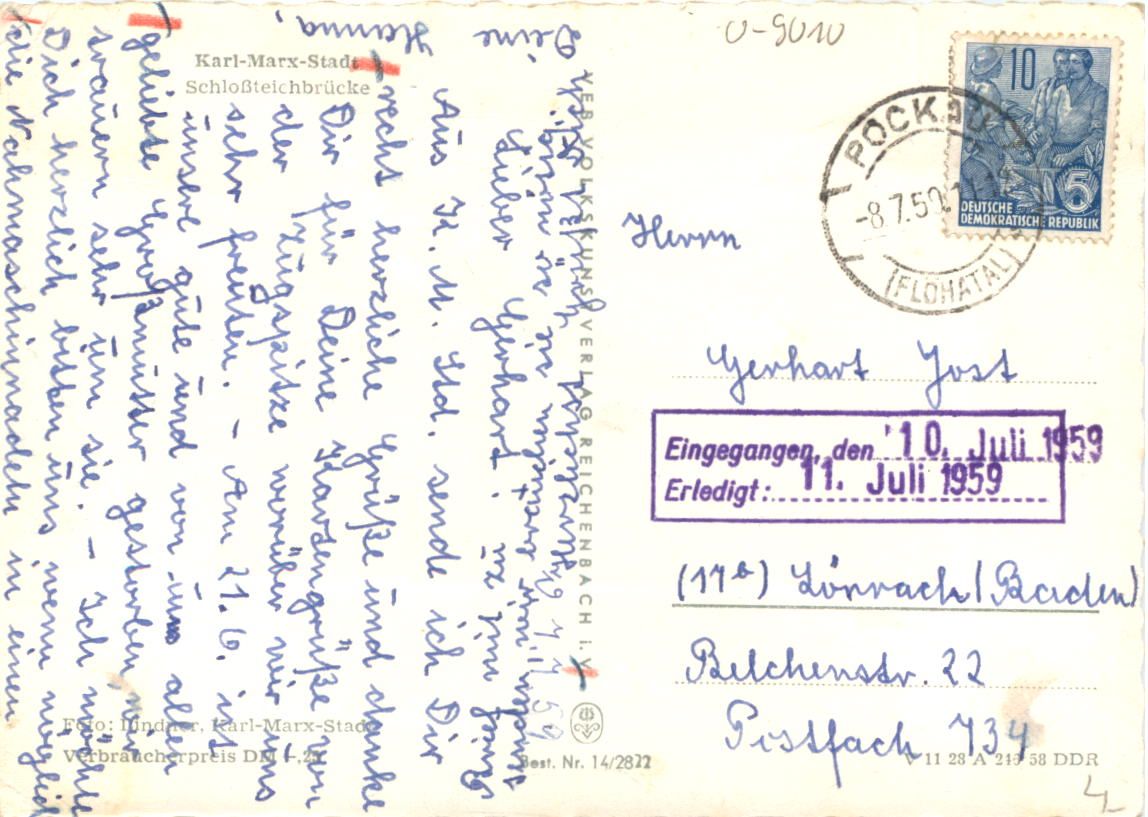 Karl-Marx-Stadt
Schloßteichbrücke
7.7.59
Lieber Gerhart!
Aus K. M. Std. sende ich Dir
recht herzliche Grüße und danke
Dir für Deine Kartengrüße von
der Zugspitze worüber wir uns
sehr freuten. – Am 21.6. ist
unsere gute und von uns allen
geliebte Großmutter gestorben, wir
trauern sehr um sie. – Ich möchte
Dich herzlich bitten uns wenn möglich
die Nähmaschinnadeln in einen
zu
senden, wir brauchen sie
Herzlichst grüßt Dich
Deine
Hanna,
Foto: Lindner, Karl-Marx-Stadt
Verbraucherpreis DM -,25
VEB VOLKSKUNSTVERLAG REICHENBACH i. V.
Best. Nr. 14/2822
O-9010
10
5
DEUTSCHE
DEMOKRATISCHE REPUBLIK
POCKAU
-8.7.59.
(FLÖHATAL)
Herrn
Gerhart Jost
Eingegangen, den 10. Juli 1959
Erledigt: 11. Juli 1959
(17b) Lörrach/Baden
Belchenstr. 22
Postfach 734
V 11 28 A 58 DDR
4,-